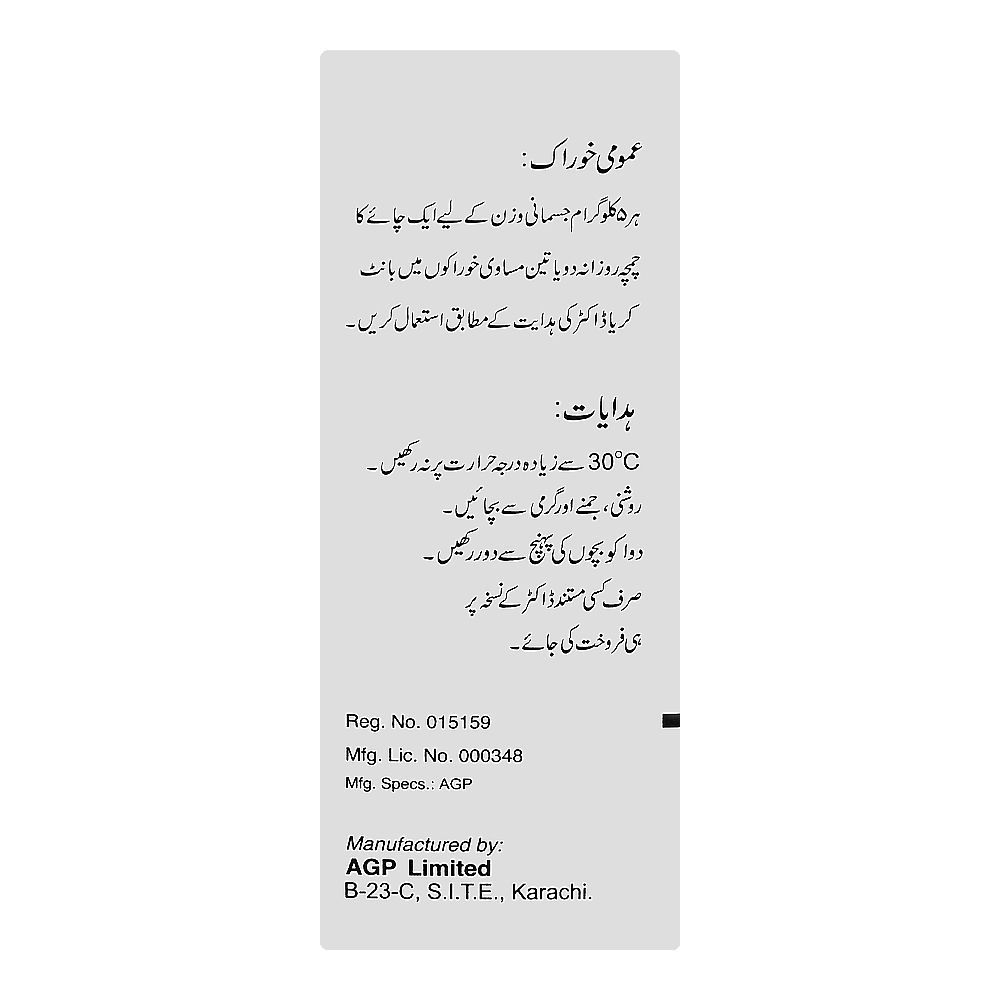 عمومی خوراک:
ہر ۵ کلوگرام جسمانی وزن کے لیے ایک چائے کا
چمچہ روزانہ دو یا تین مساوی خوراکوں میں بانٹ
کر یا ڈاکٹر کی ہدایت کے مطابق استعمال کریں۔
ہدایات:
30°C سے زیادہ درجہ حرارت پر نہ رکھیں۔
روشنی، جمنے اور گرمی سے بچائیں۔
دوا کو بچوں کی پہنچ سے دور رکھیں۔
صرف کسی مستند ڈاکٹر کے نسخہ پر
ہی فروخت کی جائے۔
Reg. No. 015159
Mfg. Lic. No. 000348
Mfg. Specs.: AGP
Manufactured by:
AGP Limited
B-23-C, S.I.T.E., Karachi.